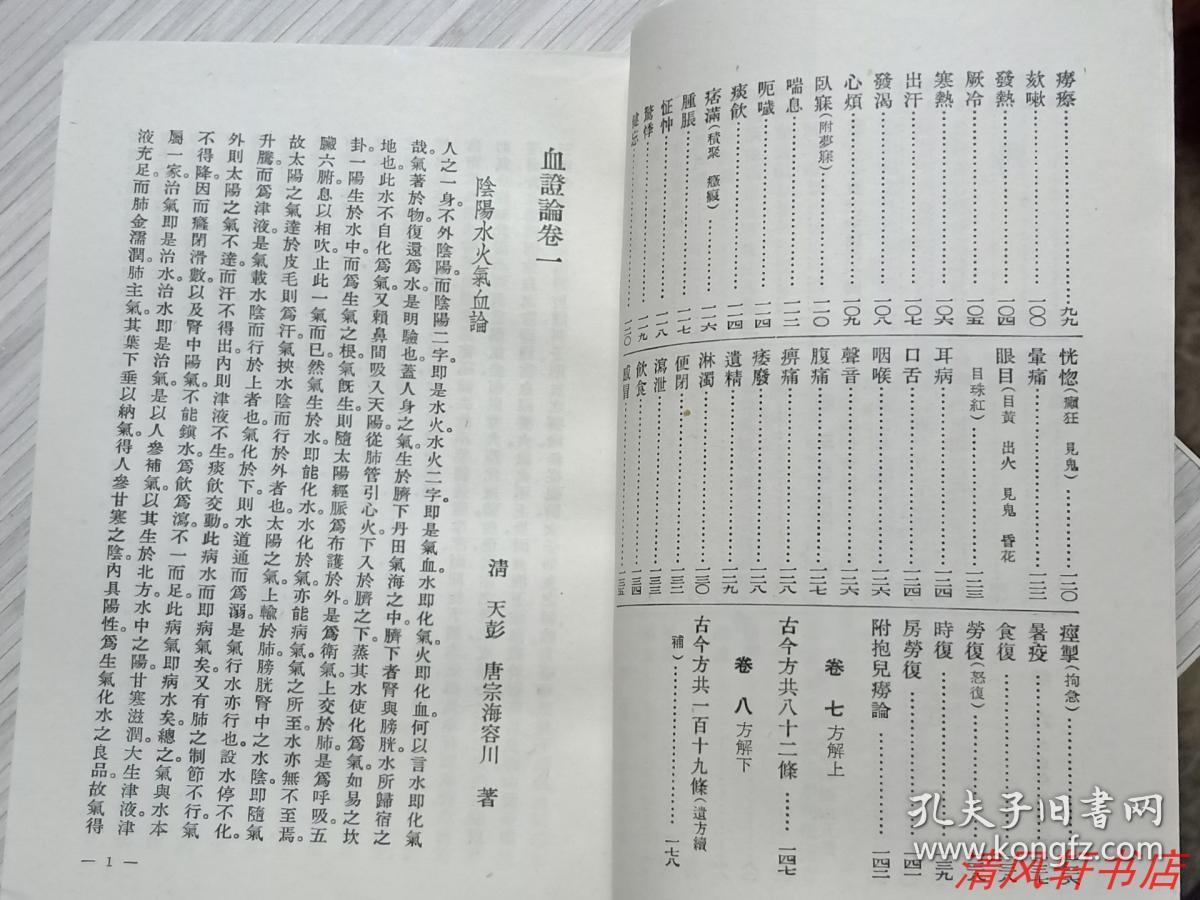 癆瘵……九九
欬嗽……一〇〇
發熱……一〇四
厥冷……一〇五
寒熱……一〇六
出汗……一〇七
發渴……一〇八
心煩……一〇九
臥寐(附夢寐)……一一〇
喘息……一一二
呃噦……一一四
痰飲……一一四
痞滿(積聚 癥瘕)……一一六
腫脹……一一七
怔忡……一一八
驚悸……一一九
健忘……一二〇
恍惚(癲狂 見鬼)……一二〇
暈痛……一二二
眼目(目黃 出火 見鬼 昏花
目珠紅)……一二三
耳病……一二四
口舌……一二四
咽喉……一二六
聲音……一二六
腹痛……一二七
痹痛……一二八
痿廢……一二八
遺精……一二九
淋濁……一三〇
便閉……一三二
瀉泄……一三三
飲食……一三四
感冒……一三五
痙掣(拘急)……
暑疫……
食復……
勞復(怒復)……
時復……一三九
房勞復……一四一
附抱兒癆論……一四二
卷七 方解上
古今方共八十二條……一四七
卷八 方解下
古今方共一百十九條(遺方續
補)……一七八
血證論卷一
清 天彭 唐宗海容川 著
陰陽水火氣血論
人之一身。不外陰陽。而陰陽二字。即是水火。水火二字。即是氣血。水即化氣。火即化血。何以言水即化氣
哉。氣著於物。復還爲水。是明驗也。蓋人身之氣。生於臍下丹田氣海之中。臍下者腎與膀胱。水所歸宿之
地也。此水不自化爲氣。又賴鼻間吸入天陽。從肺管引心火。下入於臍之下。蒸其水使化爲氣。如易之坎
卦。一陽生於水中。而爲生氣之根。氣既生。則隨太陽經脈爲布護於外。是爲衛氣。上交於肺。是爲呼吸。五
臟六腑。息以相吹。止此一氣而已。然氣生於水。即能化水。水化於氣。亦能病氣。氣之所至。水亦無不至焉。
故太陽之氣達於皮毛則爲汗。氣挾水陰而行於外者也。太陽之氣上輸於肺。膀胱腎中之水陰。即隨氣
升騰而爲津液。是氣載水陰而行於上者也。氣化於下。則水道通而爲溺。是氣行水亦行也。設水停不化。
外則太陽之氣不達。而汗不得出。內則津液不生。痰飲交動。此病水而即病氣矣。又有肺之制節不行。氣
不得降。因而癃閉滑數。以及腎中陽氣。不能鎮水。爲飲爲瀉。不一而足。此病氣即病水矣。總之氣與水本
屬一家。治氣即是治水。治水即是治氣。是以人參補氣。以其生於北方。水中之陽。甘寒滋潤。大生津液。津
液充足。而肺金濡潤。肺主氣。其葉下垂以納氣。得人參甘寒之陰。內具陽性。爲生氣化水之良品。故氣得
— 1 —
孔夫子旧书网
www.kongfz.com
清风轩书店